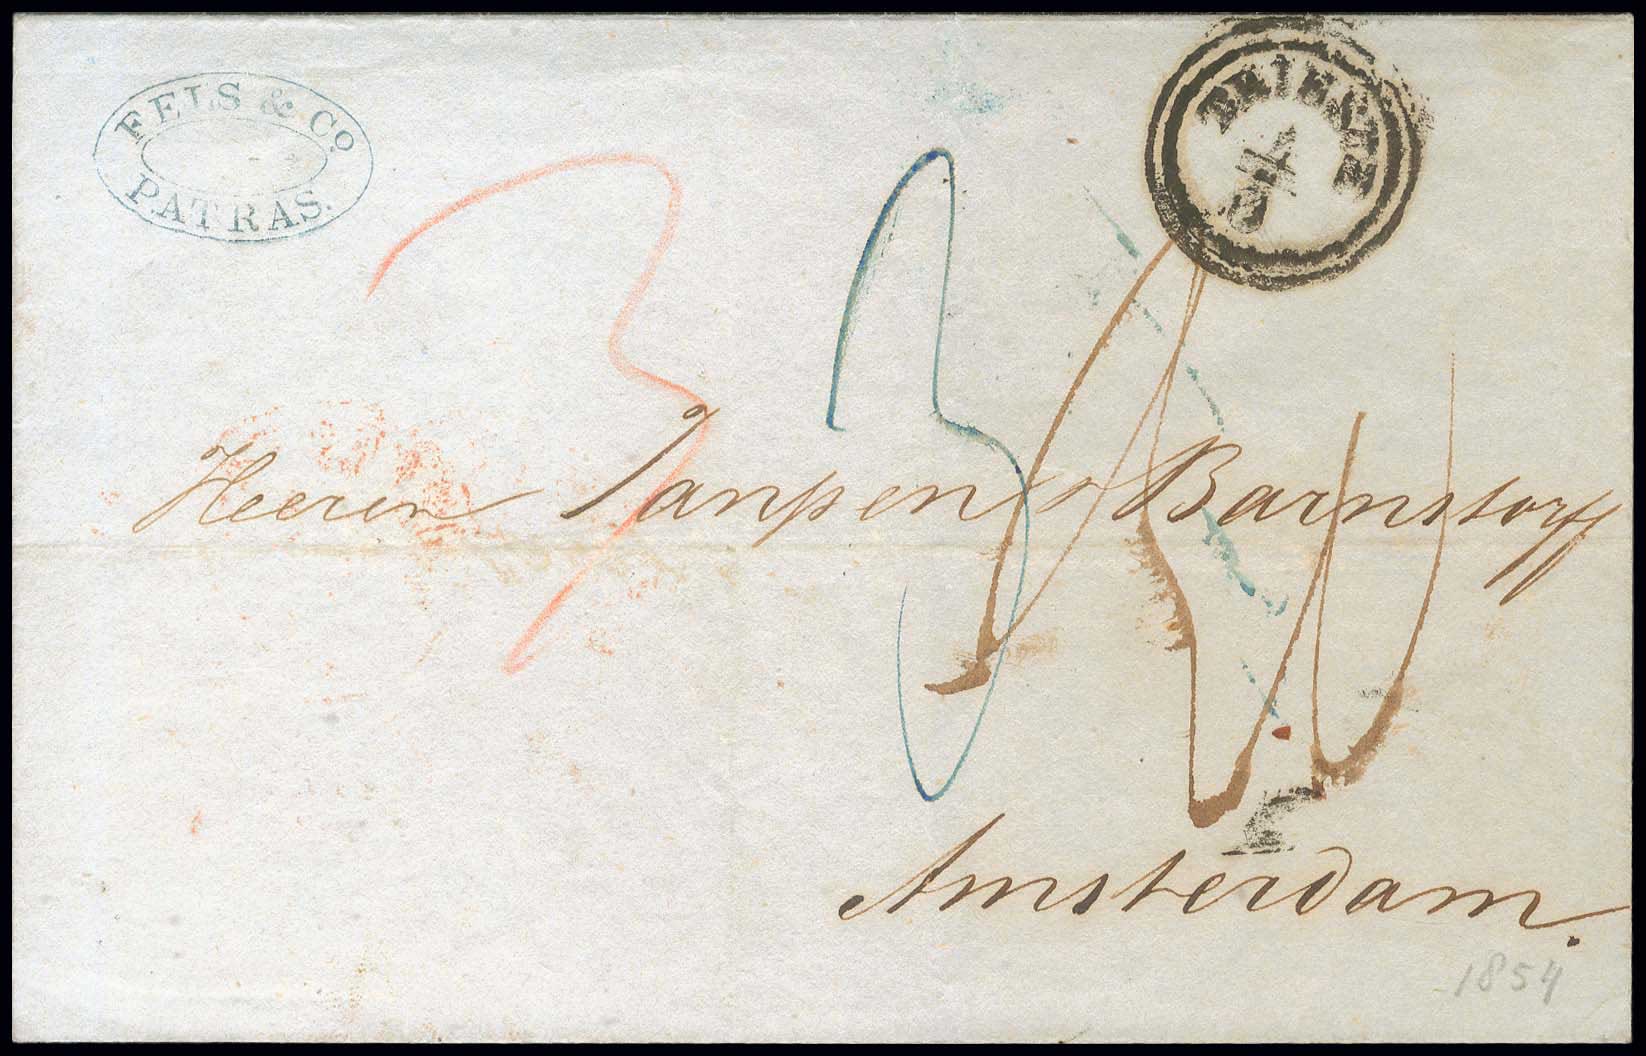 FELS & Co.
PATRAS.
TRIEST
3
3
Herren Janpen & Barnstorff
Amsterdam.
1854